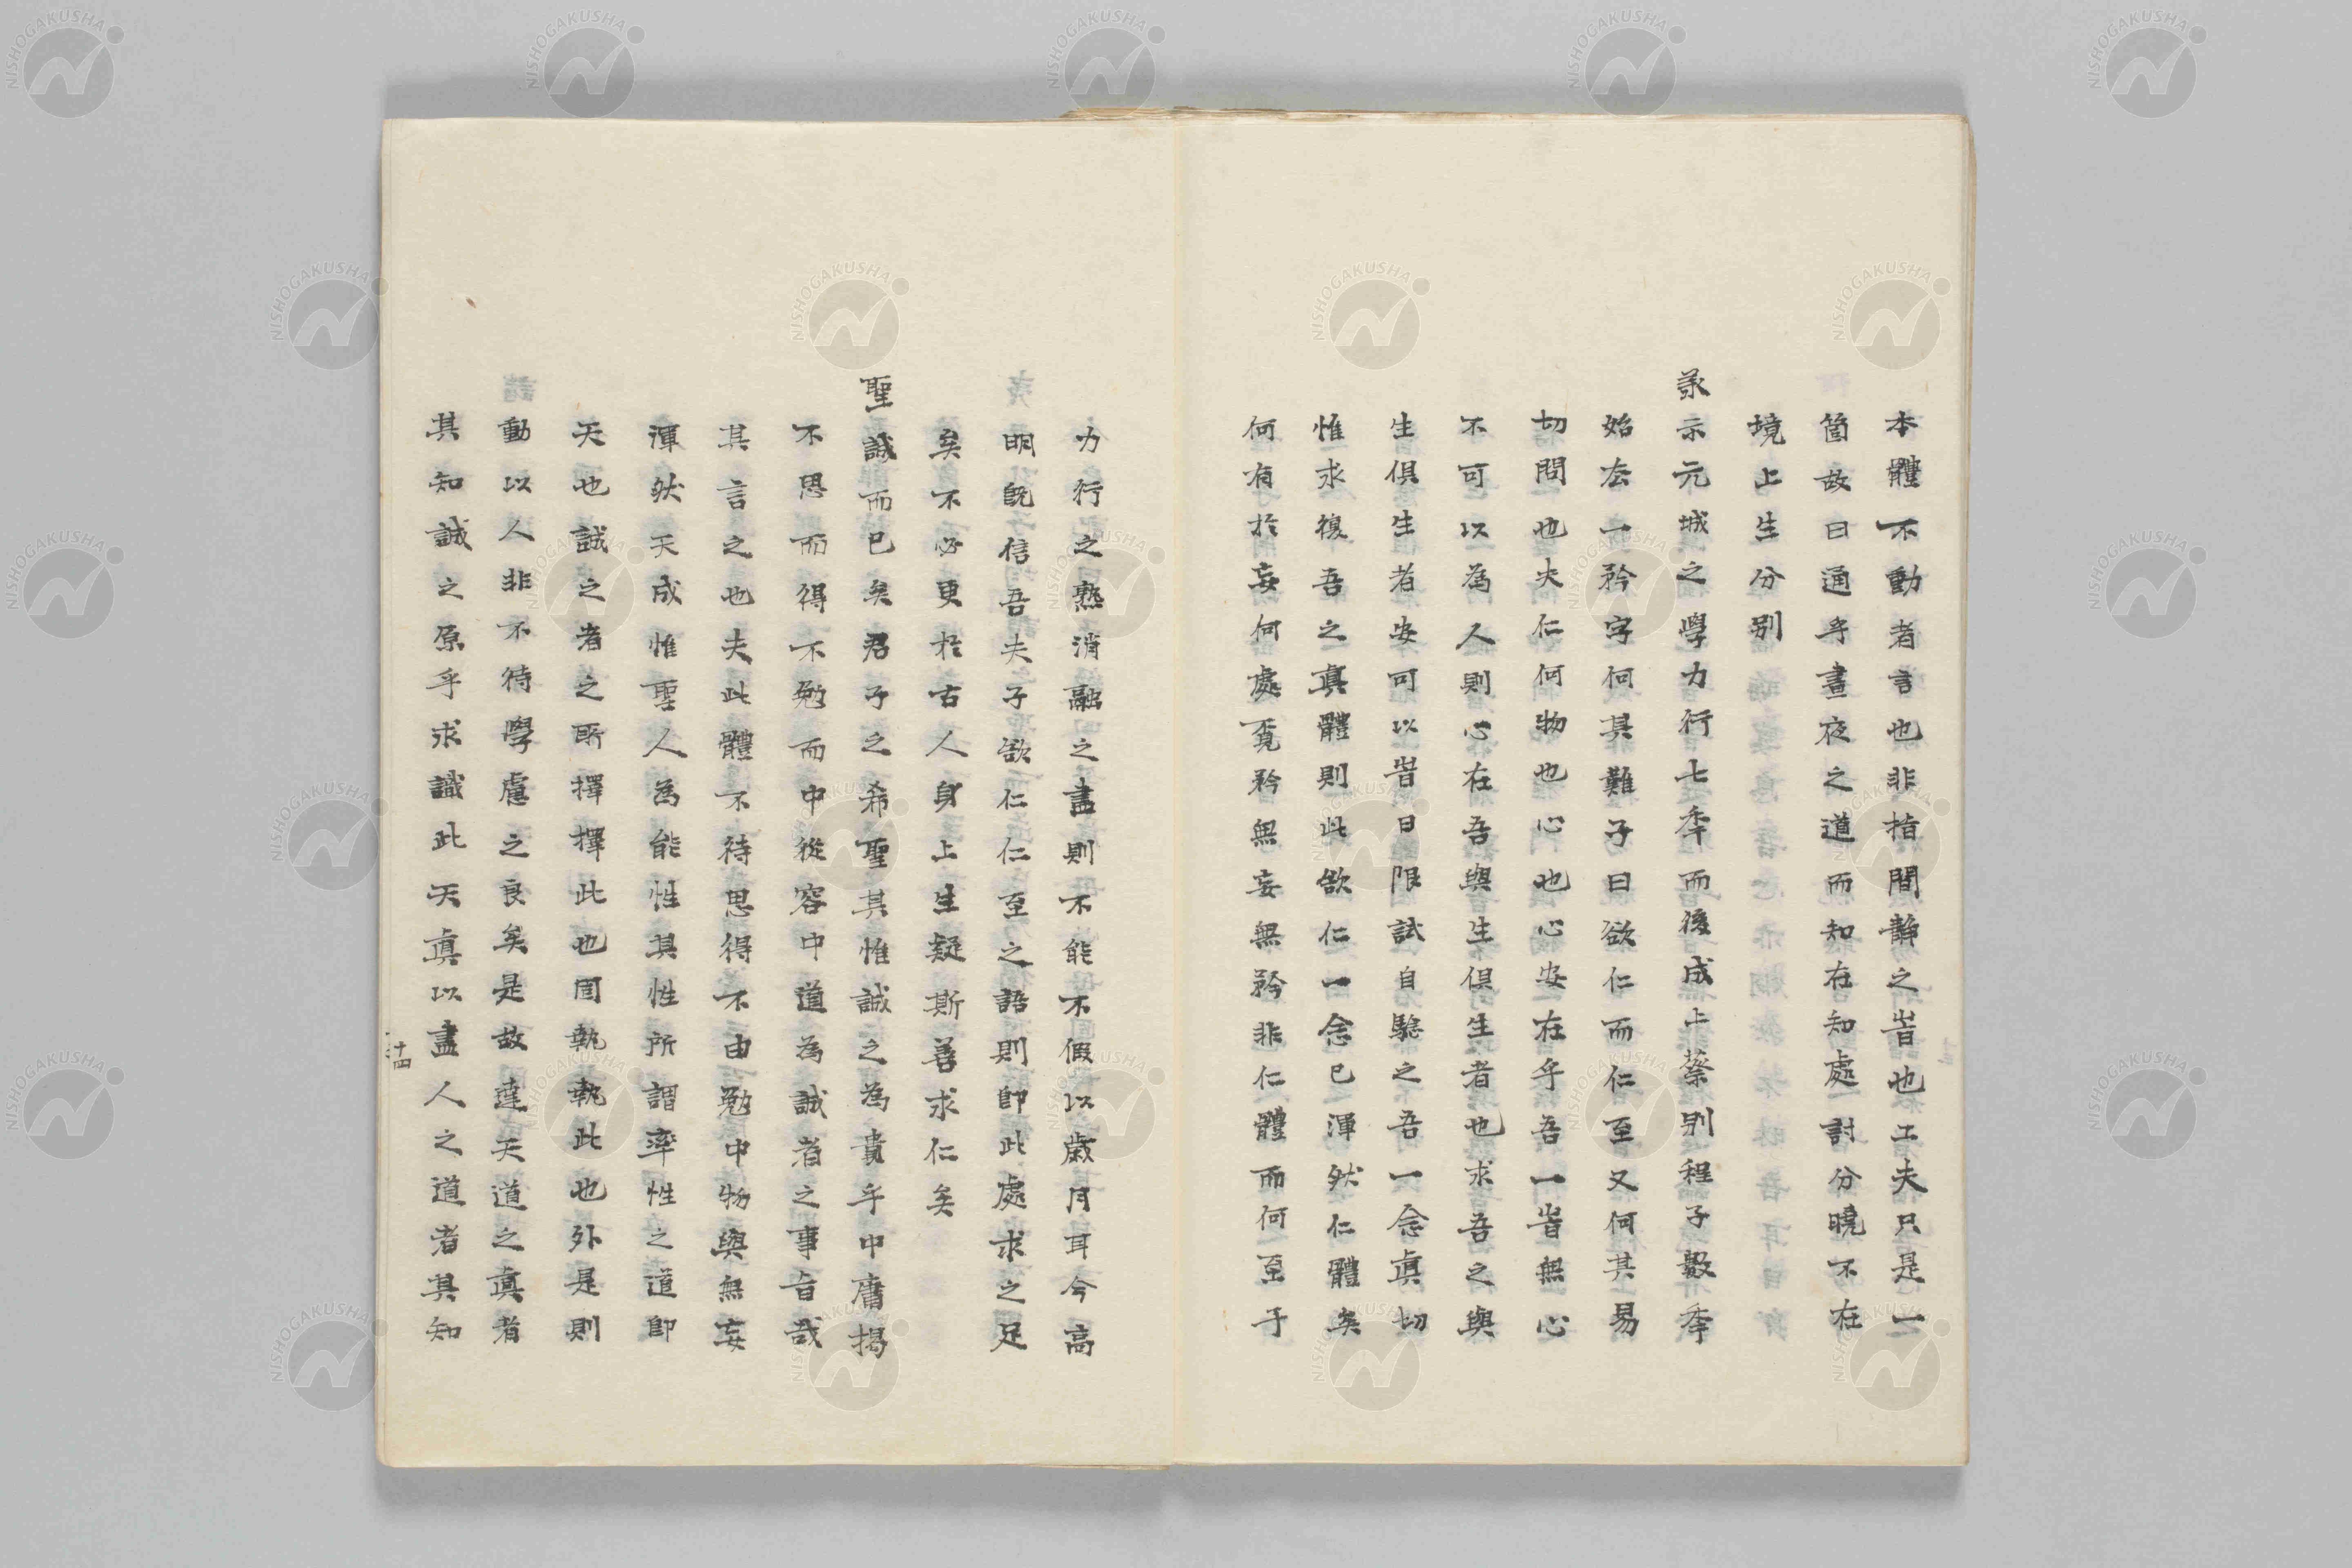 本體不動者言也非指閒靜之旹也工夫只是一
箇故曰通乎晝夜之道而知在知處討分曉不在
境上生分別
示元城之學力行七秊而後成上蔡別程子數秊
始厺一矜字何其難子曰欲仁而仁至又何其易
切問也夫仁何物也心也心安在乎吾一旹無心
不可以為人則心在吾與生俱生者也求吾之與
生俱生者安可以旹日限試自驗之吾一念真切
惟求復吾之真體則此欲仁一念已渾然仁體矣
何有於妄何處覓矜無妄無矜非仁體而何至于
力行之熟消融之盡則不能不假以歲月耳今高
明既信吾夫子欲仁仁至之語則卽此處求之足
矣不必更於古人身上生疑斯善求仁矣
聖誠而已矣君子之希聖其惟誠之為貴乎中庸揭
不思而得不勉而中從容中道為誠者之事旨哉
其言之也夫此體不待思得不由勉中物與無妄
渾然天成惟聖人為能性其性所謂率性之道卽
天也誠之者之所擇擇此也固執執此也外是則
動以人非不待學慮之良矣是故達天道之真者
其知誠之原乎求識此天真以盡人之道者其知
十四
NISHOGAKUSHA